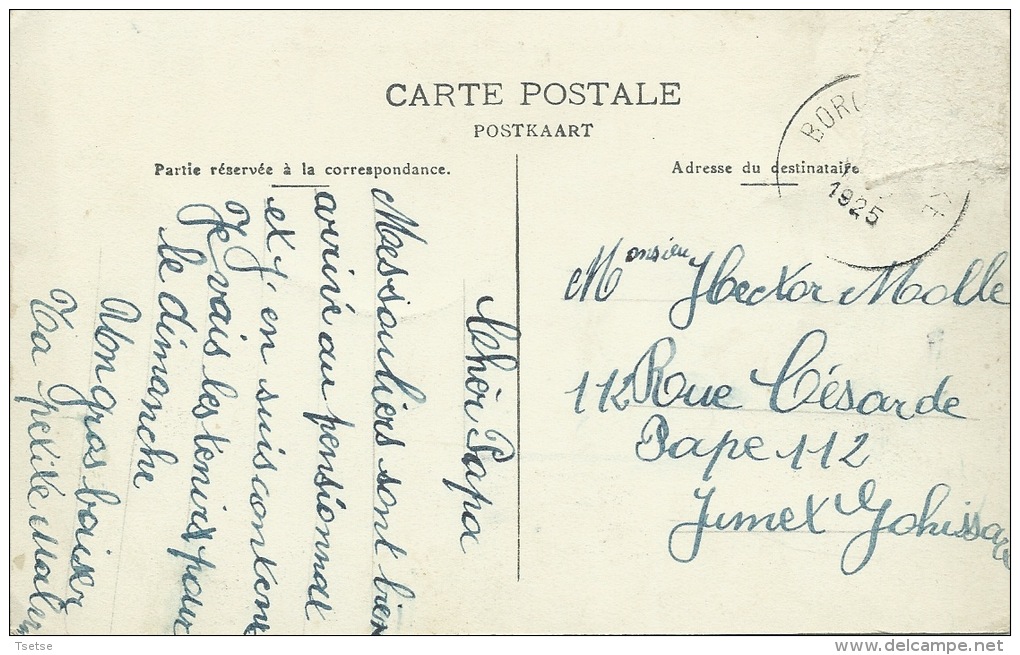 CARTE POSTALE
POSTKAART
Partie réservée à la correspondance.
Adresse du destinataire
BOR
1925
Chèr Papa
Mes souliers sont bien
arrivé au pensionnat
et j'en suis contente
Je vais les tenirs pour
le dimanche
Un gros baiser
Ta petite
Monsieur Hector Molle
112 Rue Césarde
Pape 112
Jumet Gohissart
Tsetse
www.delcampe.net